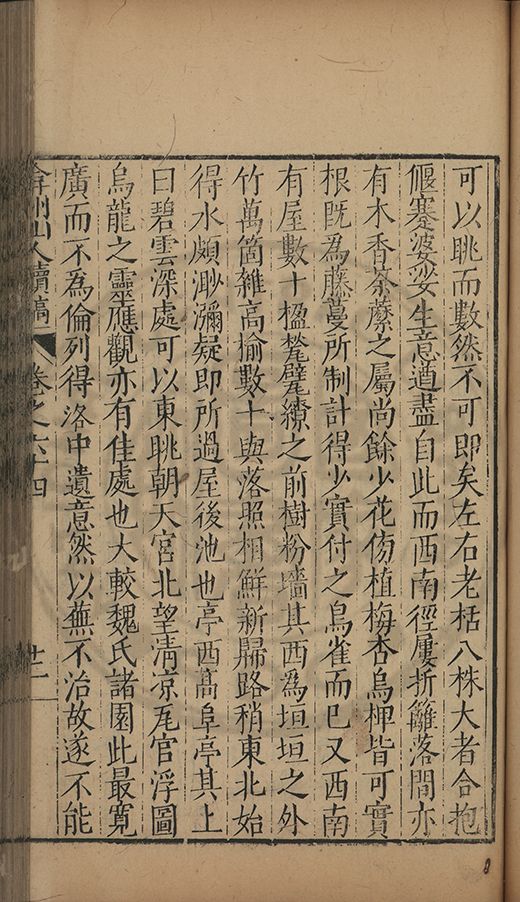 可以眺而數然不可即矣左右老栝八株大者合抱
偃蹇婆娑生意遒盡自此而西南徑屢折籬落間亦
有木香荼蘼之屬尚餘少花傍植梅杏烏椑皆可實
根既為藤蔓所制計得少實付之鳥雀而已又西南
有屋數十楹甃甓繚之前樹粉墻其西為垣垣之外
竹萬箇雜高榆數十與落照相鮮新歸路稍東北始
得水頗渺瀰疑即所過屋後池也亭西高阜亭其上
曰碧雲深處可以東眺朝天宮北望清凉瓦官浮圖
烏龍之靈應觀亦有佳處也大較魏氏諸園此最寬
廣而不為倫列得洛中遺意然以蕪不治故遂不能
弇州山人續稿 卷之六十四 廿二